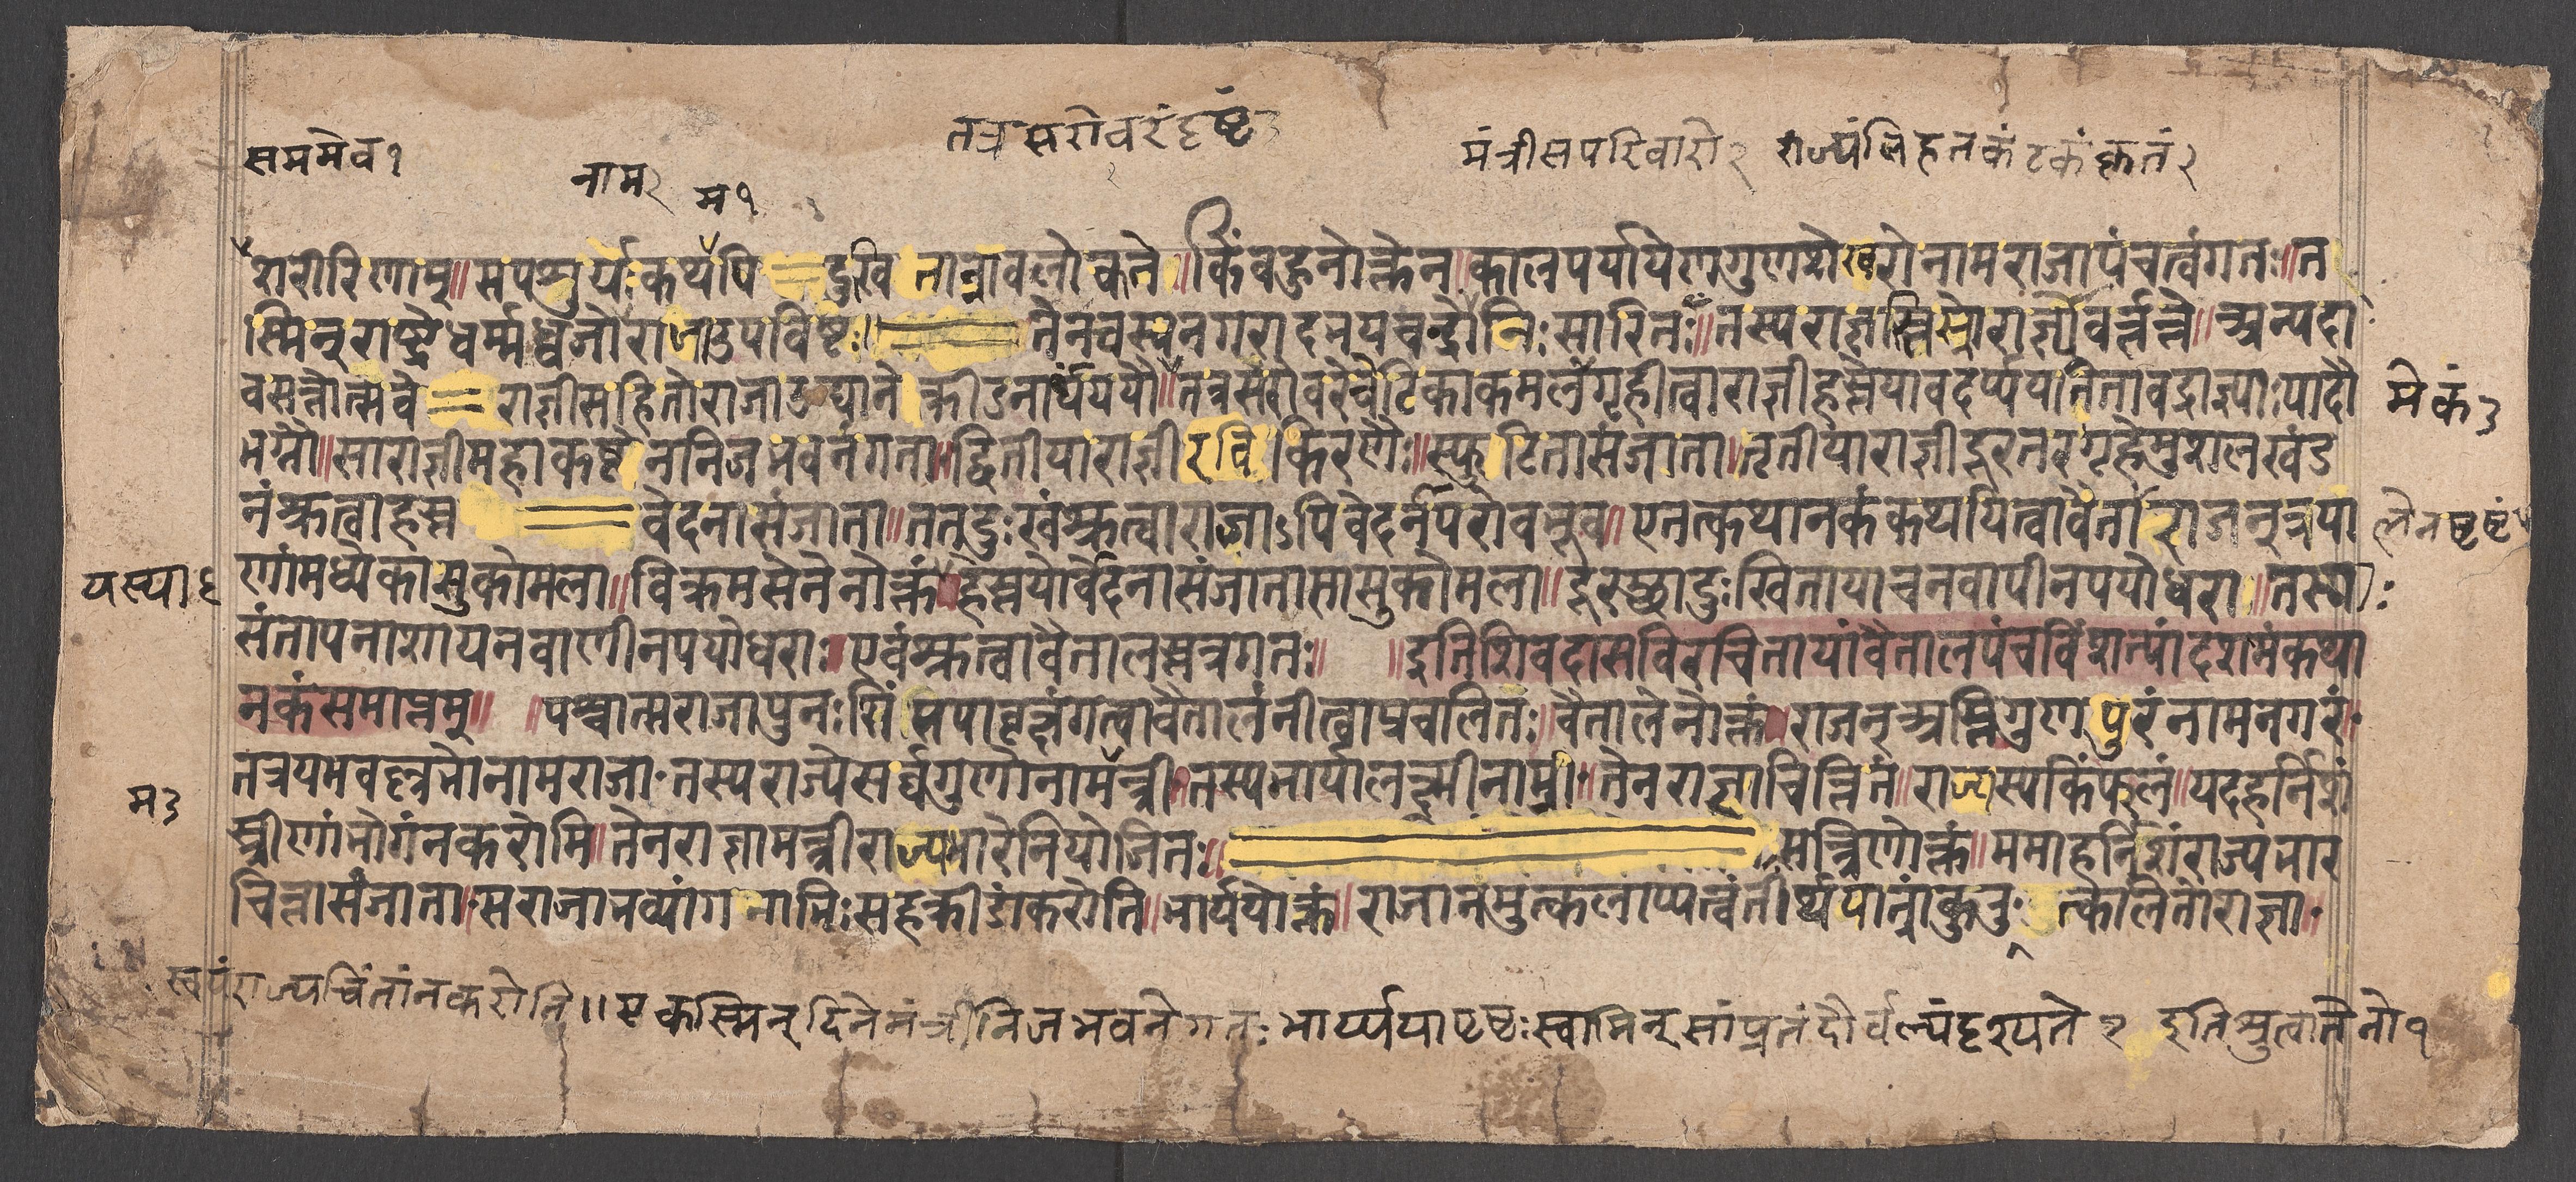 तत्र सरोवरं दृष्टं३
समभेव१ नाम२ म१ मंत्री सपरिवारो२ राज्यं निहतकंटकं कृतं२
शरीरिणाम्॥ स पश्चुर्यः कथंपि दुखि तान्नावलोकते॥ किं बहुनोक्तेन॥ कालपर्यायेण गुणशेखरो नाम राजा पंचत्वं गतः॥ त
स्मिन् राष्ट्रे धर्म्मध्वजो राजा उपविष्टः॥ तेन च स्वनगरादभयचन्द्रो निःसारितः॥ तस्य राज्ञस्तिस्रो राज्ञ्यो वर्त्तन्ते॥ अन्यदा
वसन्तोत्सवे राज्ञीसहितो राजा उद्याने क्रीडनार्थं ययौ॥ तत्र सरोवरे चेटिका कमलं गृहीत्वा राज्ञीहस्ते यावदर्प्पयति तावद्राज्ञ्याः पादौ मेकं३
भग्नौ॥ सा राज्ञी महाकष्टेन निजभवनं गता॥ द्वितीया राज्ञी रवि किरणैः॥ स्फुटिता संजाता॥ तृतीया राज्ञी दूरतरगृहे मुशलखंड
नं श्रुत्वा हस्त वेदना संजाता॥ तत् दुःखं श्रुत्वा राजाऽपि वेदनपरो बभूव॥ एतत्कथानकं कथयित्वा वेता राजन् त्रया लेन पृष्टं
यस्या६ णां मध्ये का सुकोमला॥ विक्रमसेनेनोक्तं॥ हस्तयोर्वेदना संजाता सा सुकोमला॥ दूरस्था दुःखिता या च नवा पीनपयोधरा॥ तस्याः
संतापनाशाय नवा पीनपयोधरा॥ एवं श्रुत्वा वेतालस्तत्र गतः॥ ॥ इति शिवदासविरचितायां वेतालपंचविंशत्यां दशमं कथा
नकं समाप्तम्॥ ॥ पश्चात्स राजा पुनः शिंसपावृक्षं गत्वा वेतालं नीत्वा प्रचलितः॥ वेतालेनोक्तं॥ राजन् अस्ति गुणपुरं नाम नगरं॥
म३ तत्र यमवल्लभो नाम राजा॥ तस्य राज्ये सर्वगुणो नाम मन्त्री॥ तस्य भार्या लक्ष्मीनाम्नी॥ तेन राज्ञा चिन्तितं॥ राज्यस्य किं फलं॥ यदहर्निशं
स्त्रीणां भोगं न करोमि॥ तेन राज्ञा मन्त्री राज्यभारे नियोजितः॥ मन्त्रिणोक्तं॥ ममाहर्निशं राज्यभार
चिन्ता संजाता॥ स राजा नव्यांगनाभिः सह क्रीडां करोति॥ भार्ययोक्तं॥ राजानमुत्कलाप्य त्वं तीर्थयात्रां कुरु॥ त्कलितो राजा॥
स्वयं राज्यचिंतां न करोति॥ एकस्मिन् दिने मंत्री निजभवने गतः भार्य्यया पृष्टः स्वामिन् सांप्रतं दौर्वल्यं दृश्यते२ इति श्रुत्वा तेनो१